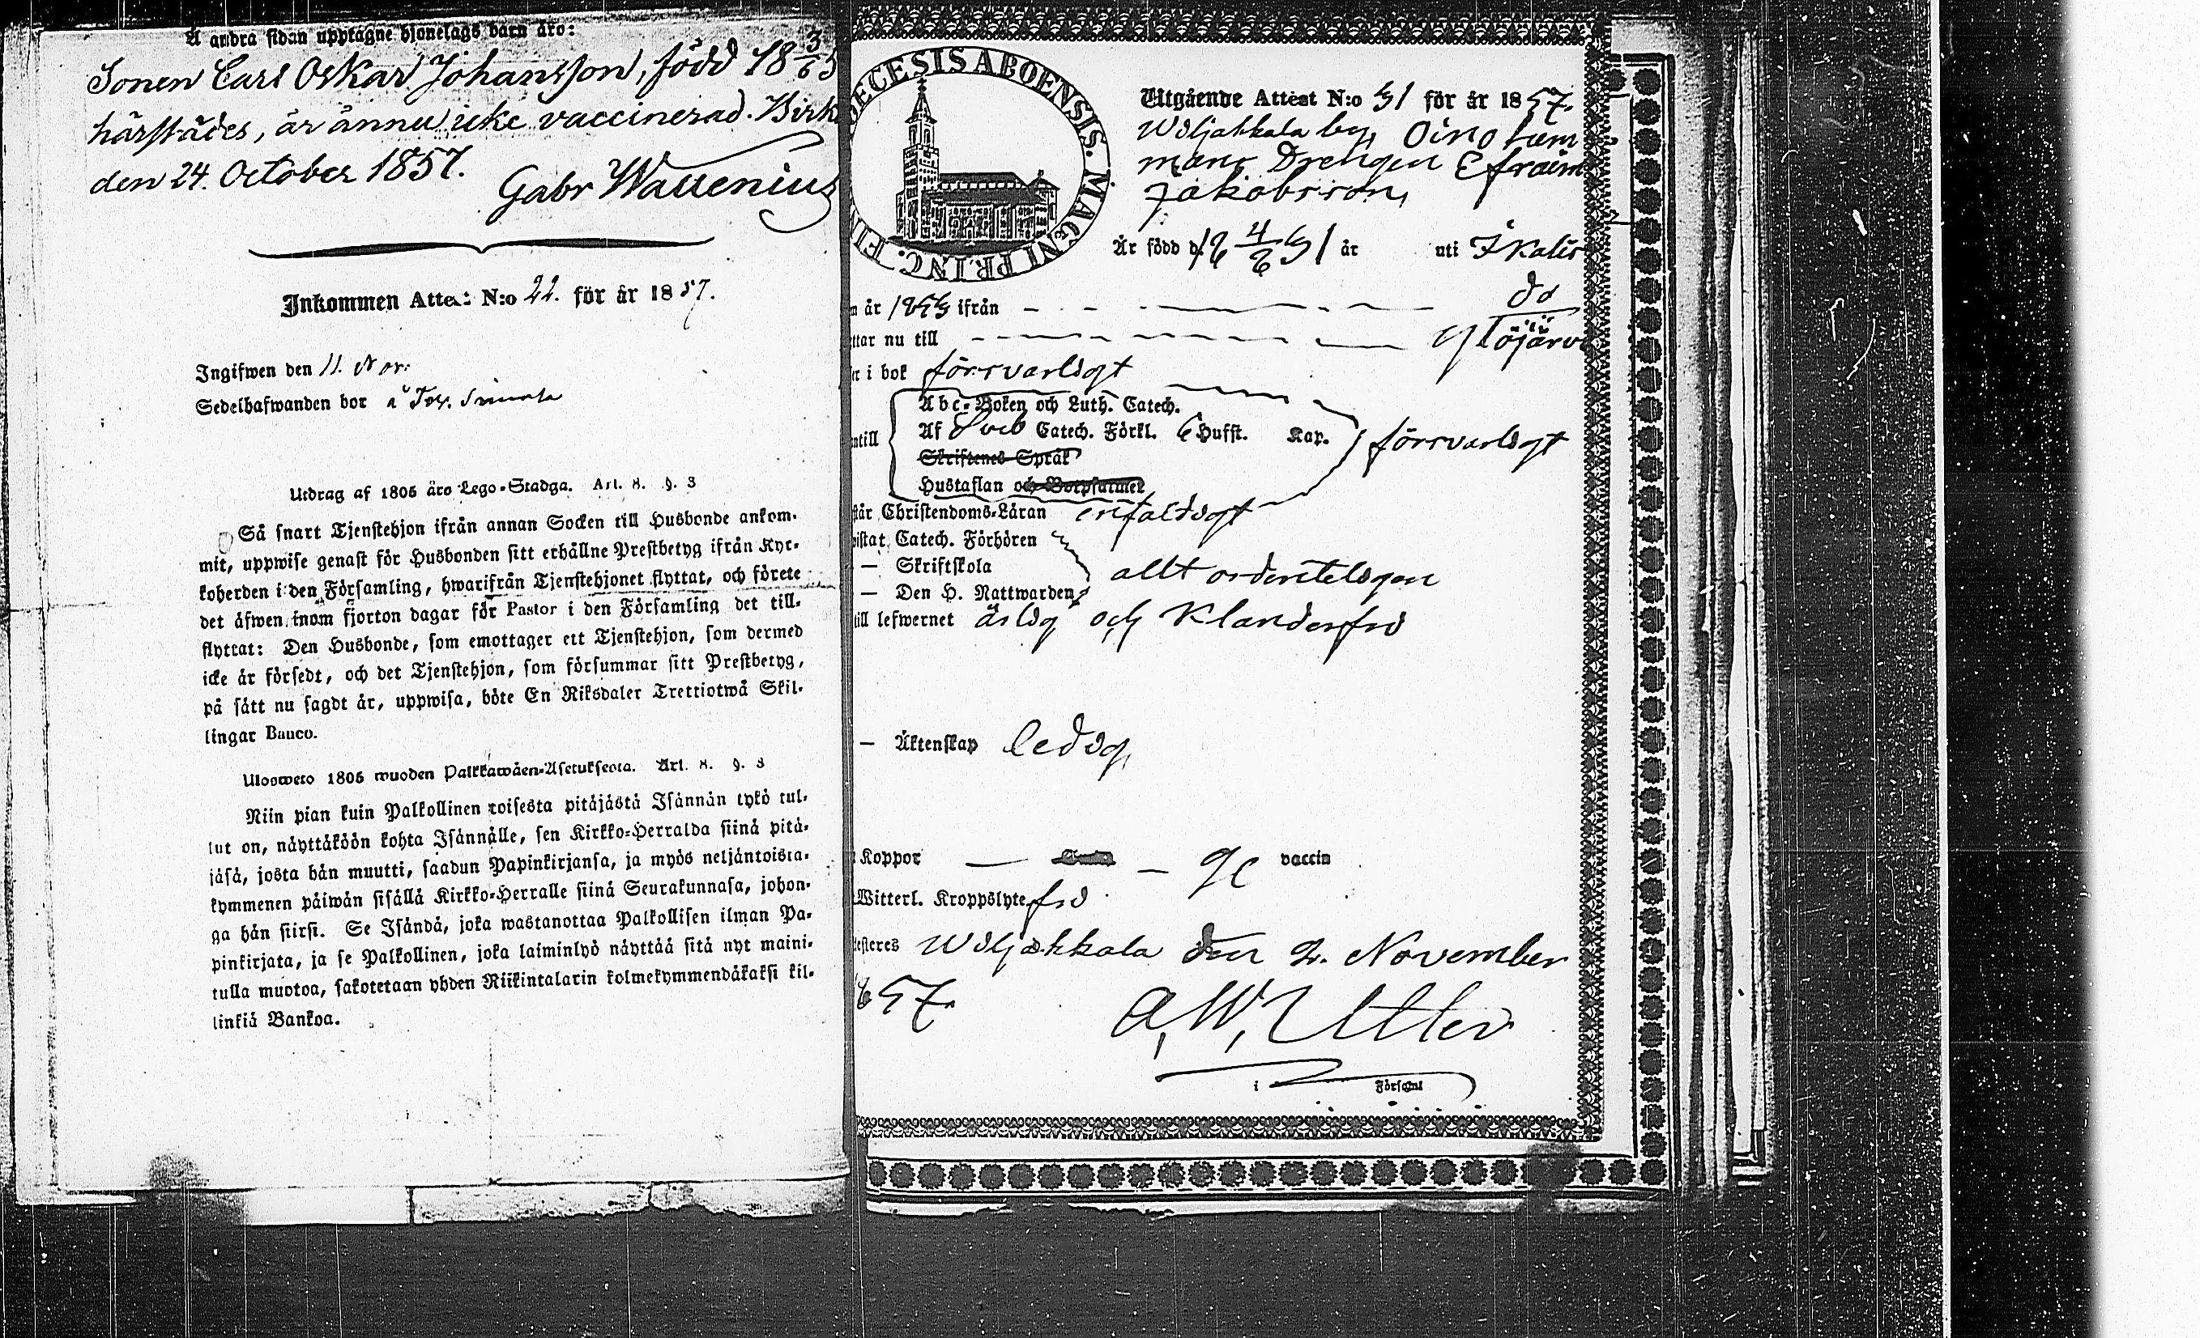 Å andra sidan upptagne hjonelags barn äro:
Sonen Carl Oskar Johansson, född 18 3/6 5
härstädes, är ännu icke vaccinerad. Birk
den 24. October 1857.
Gabr Wallenius
Inkommen Attest N:o 22. för år 1857.
Ingifwen den 11. Nov.
Sedelhafwanden bor å
Utdrag af 1805 års Lego-Stadga. Art. 8. §. 3
Så snart Tjenstehjon ifrån annan Socken till Husbonde ankom-
mit, uppwise genast för Husbonden sitt erhållne Prestbetyg ifrån Kyr-
koherden i den Församling, hwarifrån Tjenstehjonet flyttat, och förete
det äfwen inom fjorton dagar för Pastor i den Församling det till-
flyttat: Den Husbonde, som emottager ett Tjenstehjon, som dermed
icke är försedt, och det Tjenstehjon, som försummar sitt Prestbetyg,
på sätt nu sagdt är, uppwisa, böte En Riksdaler Trettiotwå Skil-
lingar Banco.
Ulosweto 1805 wuoden Palkkawäen-Asetuksesta. Art. 8. §. 3
Niin pian kuin Palkollinen toisesta pitäjästä Isännän tykö tul-
lut on, näyttäköön kohta Isännälle, sen Kirkko-Herralda siinä pitä-
jäsä, josta hän muutti, saadun Papinkirjansa, ja myös neljäntoista-
kymmenen päiwän sisällä Kirkko-Herralle siinä Seurakunnasa, johon-
ga hän siirsi. Se Isändä, joka wastanottaa Palkollisen ilman Pa-
pinkirjata, ja se Palkollinen, joka laiminlyö näyttää sitä nyt maini-
tulla muotoa, sakotetaan yhden Riikintalarin kolmekymmendäkaksi kil-
linkiä Bankoa.
DIECESIS ABOENSIS. MAGNI PRINC. FIN
Utgående Attest N:o 31 för år 1857.
Wiljakkala by, Oino hem
mans Drengen Efraim
Jakobsson,
Är född d. 18 4/6 31 år uti Ikalis
n år 1853 ifrån — do
ttar nu till — Ylöjärvi
r i bok försvarligt
ntill
Abc-Boken och Luth. Catech.
Af Sveb Catech. Förkl. 6 Hufst. Kap. försvarligt
Skriftenes Språk
Hustaflan och Botpsalmer
står Christendoms-Läran enfaldigt
wistat Catech. Förhören
— Skriftskola allt ordenteligen
— Den H. Nattwarden
till lefwernet ärlig och klanderfri
— Äktenskap ledig,
Koppor — — gc vaccin
Witterl. Kroppslyte fri
testeres Wiljakkala den 2. November
857.
A, W, Utter
i Församl